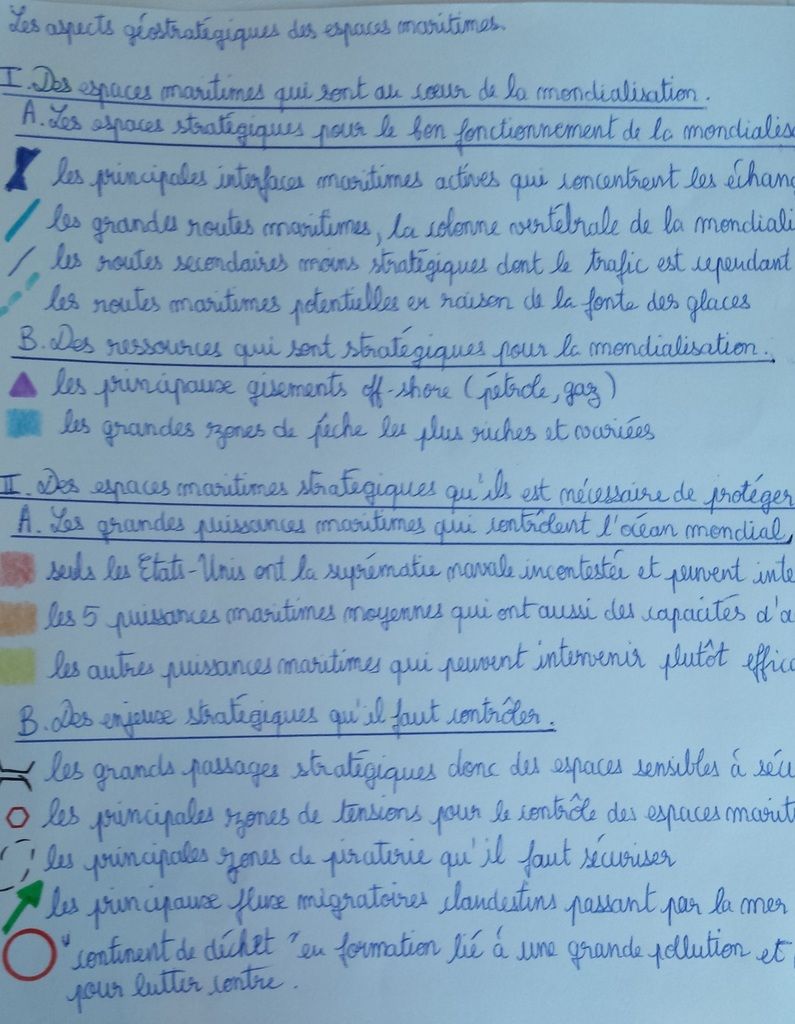 Les aspects géostratégiques des espaces maritimes.
I. Des espaces maritimes qui sont au cœur de la mondialisation.
A. Les espaces stratégiques pour le bon fonctionnement de la mondialisa
les principales interfaces maritimes actives qui concentrent les échang
les grandes routes maritimes, la colonne vertébrale de la mondiali
les routes secondaires moins stratégiques dont le trafic est cependant
les routes maritimes potentielles en raison de la fonte des glaces
B. Des ressources qui sont stratégiques pour la mondialisation.
les principaux gisements off-shore (pétrole, gaz)
les grandes zones de pêche les plus riches et variées
II. Des espaces maritimes stratégiques qu'ils est nécessaire de protéger
A. Les grandes puissances maritimes qui contrôlent l'océan mondial,
seuls les Etats-Unis ont la suprématie navale incontestée et peuvent inte
les 5 puissances maritimes moyennes qui ont aussi des capacités d'a
les autres puissances maritimes qui peuvent intervenir plutôt effica
B. Des enjeux stratégiques qu'il faut contrôler.
les grands passages stratégiques donc des espaces sensibles à sécu
les principales zones de tensions pour le contrôle des espaces marit
les principales zones de piraterie qu'il faut sécuriser
les principaux flux migratoires clandestins passant par la mer
"continent de déchet" en formation lié à une grande pollution et
pour lutter contre.